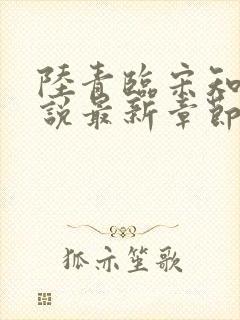 陸青臨宋知
說最新章節
狐亦笙歌